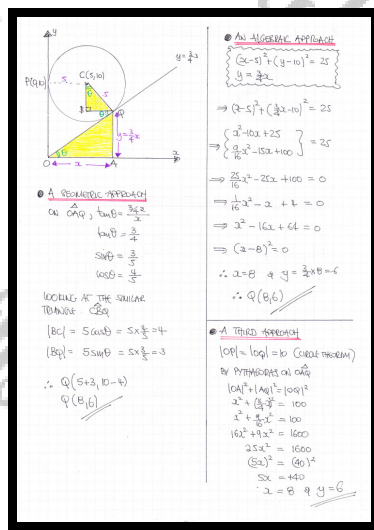 y
C(5,10)
y = 3/4 x
P(0,10)
5
5
θ
B
θ
Q
y = 3/4 x
θ
O
x
A
x
● A GEOMETRIC APPROACH
ON OÂQ, tanθ = (3/4 x)/x
tanθ = 3/4
sinθ = 3/5
cosθ = 4/5
LOOKING AT THE SIMILAR
TRIANGLE CB̂Q
|BC| = 5cosθ = 5×4/5 = 4
|BQ| = 5sinθ = 5×3/5 = 3
∴ Q(5+3, 10-4)
Q(8,6)
● AN ALGEBRAIC APPROACH
(x-5)² + (y-10)² = 25
y = 3/4 x
⇒ (x-5)² + (3/4 x - 10)² = 25
⇒ { x² - 10x + 25
9/16 x² - 15x + 100 } = 25
⇒ 25/16 x² - 25x + 100 = 0
⇒ 1/16 x² - x + 4 = 0
⇒ x² - 16x + 64 = 0
⇒ (x-8)² = 0
∴ x=8 & y = 3/4 × 8 = 6
∴ Q(8,6)
● A THIRD APPROACH
|OP| = |OQ| = 10 (CIRCLE THEOREM)
BY PYTHAGORAS ON OÂQ
|OA|² + |AQ|² = |OQ|²
x² + (3/4 x)² = 100
x² + 9/16 x² = 100
16x² + 9x² = 1600
25x² = 1600
(5x)² = (40)²
5x = +40
∴ x = 8 & y = 6